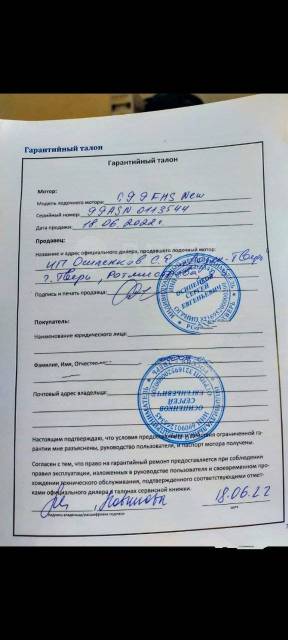 Гарантийный талон
Гарантийный талон
Мотор:
Модель лодочного мотора: 9.9 FHS New
Серийный номер 99ASN 0113544
Дата продажи: 18.06.2022г
Продавец:
Название и адрес официального дилера, продавшего лодочный мотор:
ИП Осипенков С.Е. Тверь
г. Тверь,
Подпись и печать продавца:
Покупатель:
Наименование юридического лица:
Фамилия, Имя, Отчество
Почтовый адрес владельца:
Настоящим подтверждаю, что условия ограниченной га-
рантии мне разъяснены, руководство пользователя, и паспорт мотора получены.
Согласен с тем, что право на гарантийный ремонт предоставляется при соблюдении
правил эксплуатации, изложенных в руководстве пользователя и своевременном про-
хождении технического обслуживания, подтвержденного соответствующими отмет-
ками официального дилера в талонах сервисной книжки.
18.06.22
подпись владельца/расшифровка подписи дата
ОСИПЕНКОВ
СЕРГЕЙ
ЕВГЕНЬЕВИЧ
ОСИПЕНКОВ
СЕРГЕЙ
ЕВГЕНЬЕВИЧ